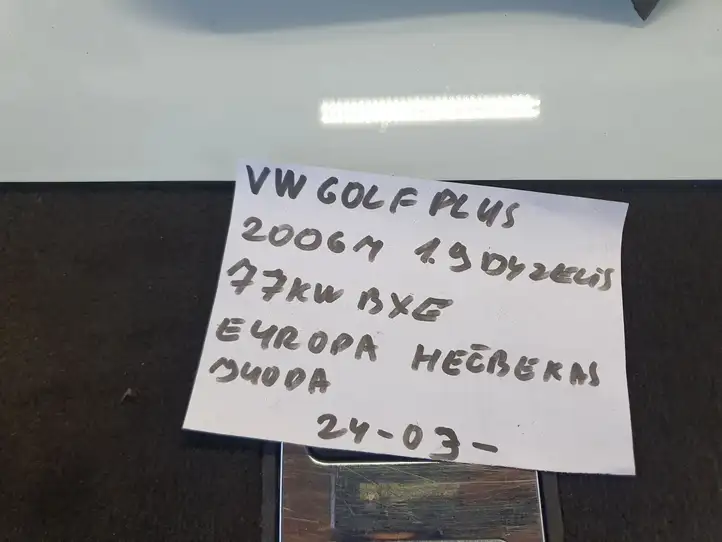 VW GOLF PLUS
2006M 1.9 DYZELIS
77KW BXE
EUROPA HEČBEKAS
JUODA
24-03-